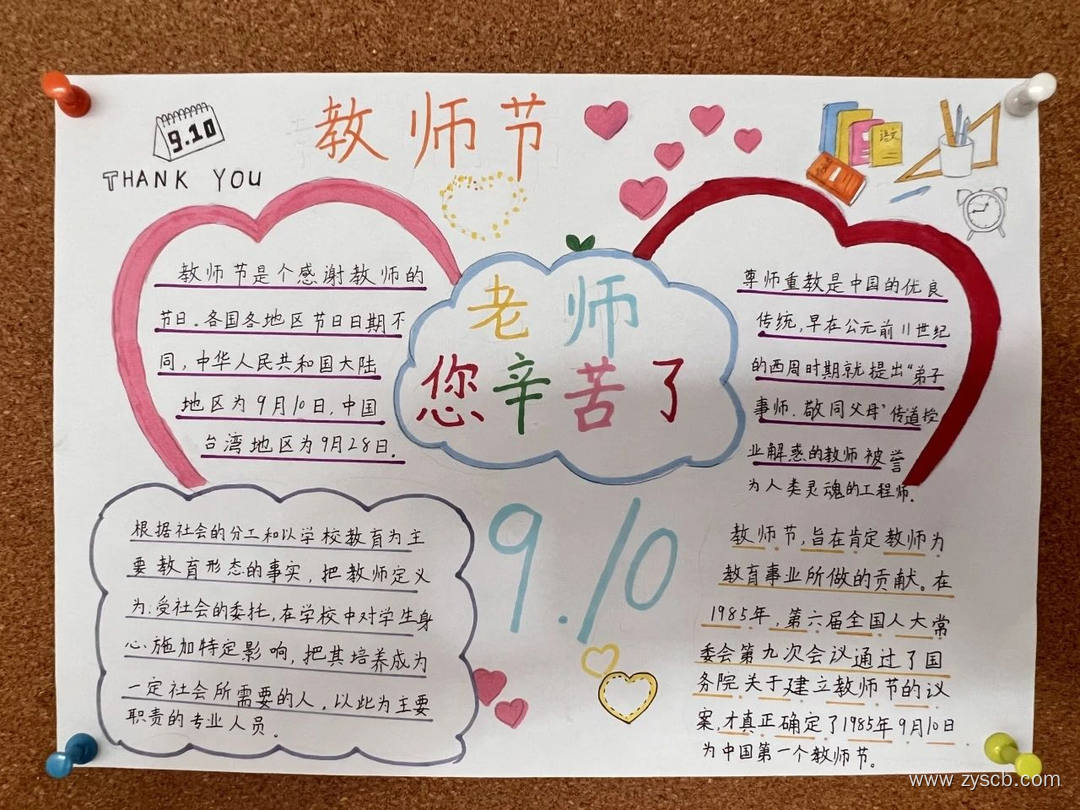 9.10
THANK YOU
教师节
语文
教师节是个感谢教师的
节日。各国各地区节日日期不
同,中华人民共和国大陆
地区为9月10日,中国
台湾地区为9月28日.
老师
您辛苦了
尊师重教是中国的优良
传统,早在公元前11世纪
的西周时期就提出“弟子
事师.敬同父母”传道授
业解惑的教师被誉
为人类灵魂的工程师.
根据社会的分工和以学校教育为主
要教育形态的事实,把教师定义
为:受社会的委托,在学校中对学生身
心施加特定影响,把其培养成为
一定社会所需要的人,以此为主要
职责的专业人员.
9.10
教师节,旨在肯定教师为
教育事业所做的贡献。在
1985年,第六届全国人大常
委会第九次会议通过了国
务院关于建立教师节的议
案,才真正确定了1985年9月10日
为中国第一个教师节。
www.zyscb.com